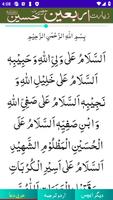 4:08
زیارت اربعین حسین
بِسْمِ اللّٰهِ الرَّحْمٰنِ الرَّحِيْمِ
اَلسَّلَامُ عَلٰى وَلِيِّ اللّٰهِ وَ حَبِيْبِهٖ
اَلسَّلَامُ عَلٰى خَلِيْلِ اللّٰهِ وَ
نَجِيْبِهٖ اَلسَّلَامُ عَلٰى صَفِيِّ
اللّٰهِ وَابْنِ صَفِيِّهٖ اَلسَّلَامُ عَلَى
الْحُسَيْنِ الْمَظْلُوْمِ الشَّهِيْدِ
اَلسَّلَامُ عَلٰى اَسِيْرِ الْكُرُبَاتِ
اردو ترجمہ
دیگر ایپس